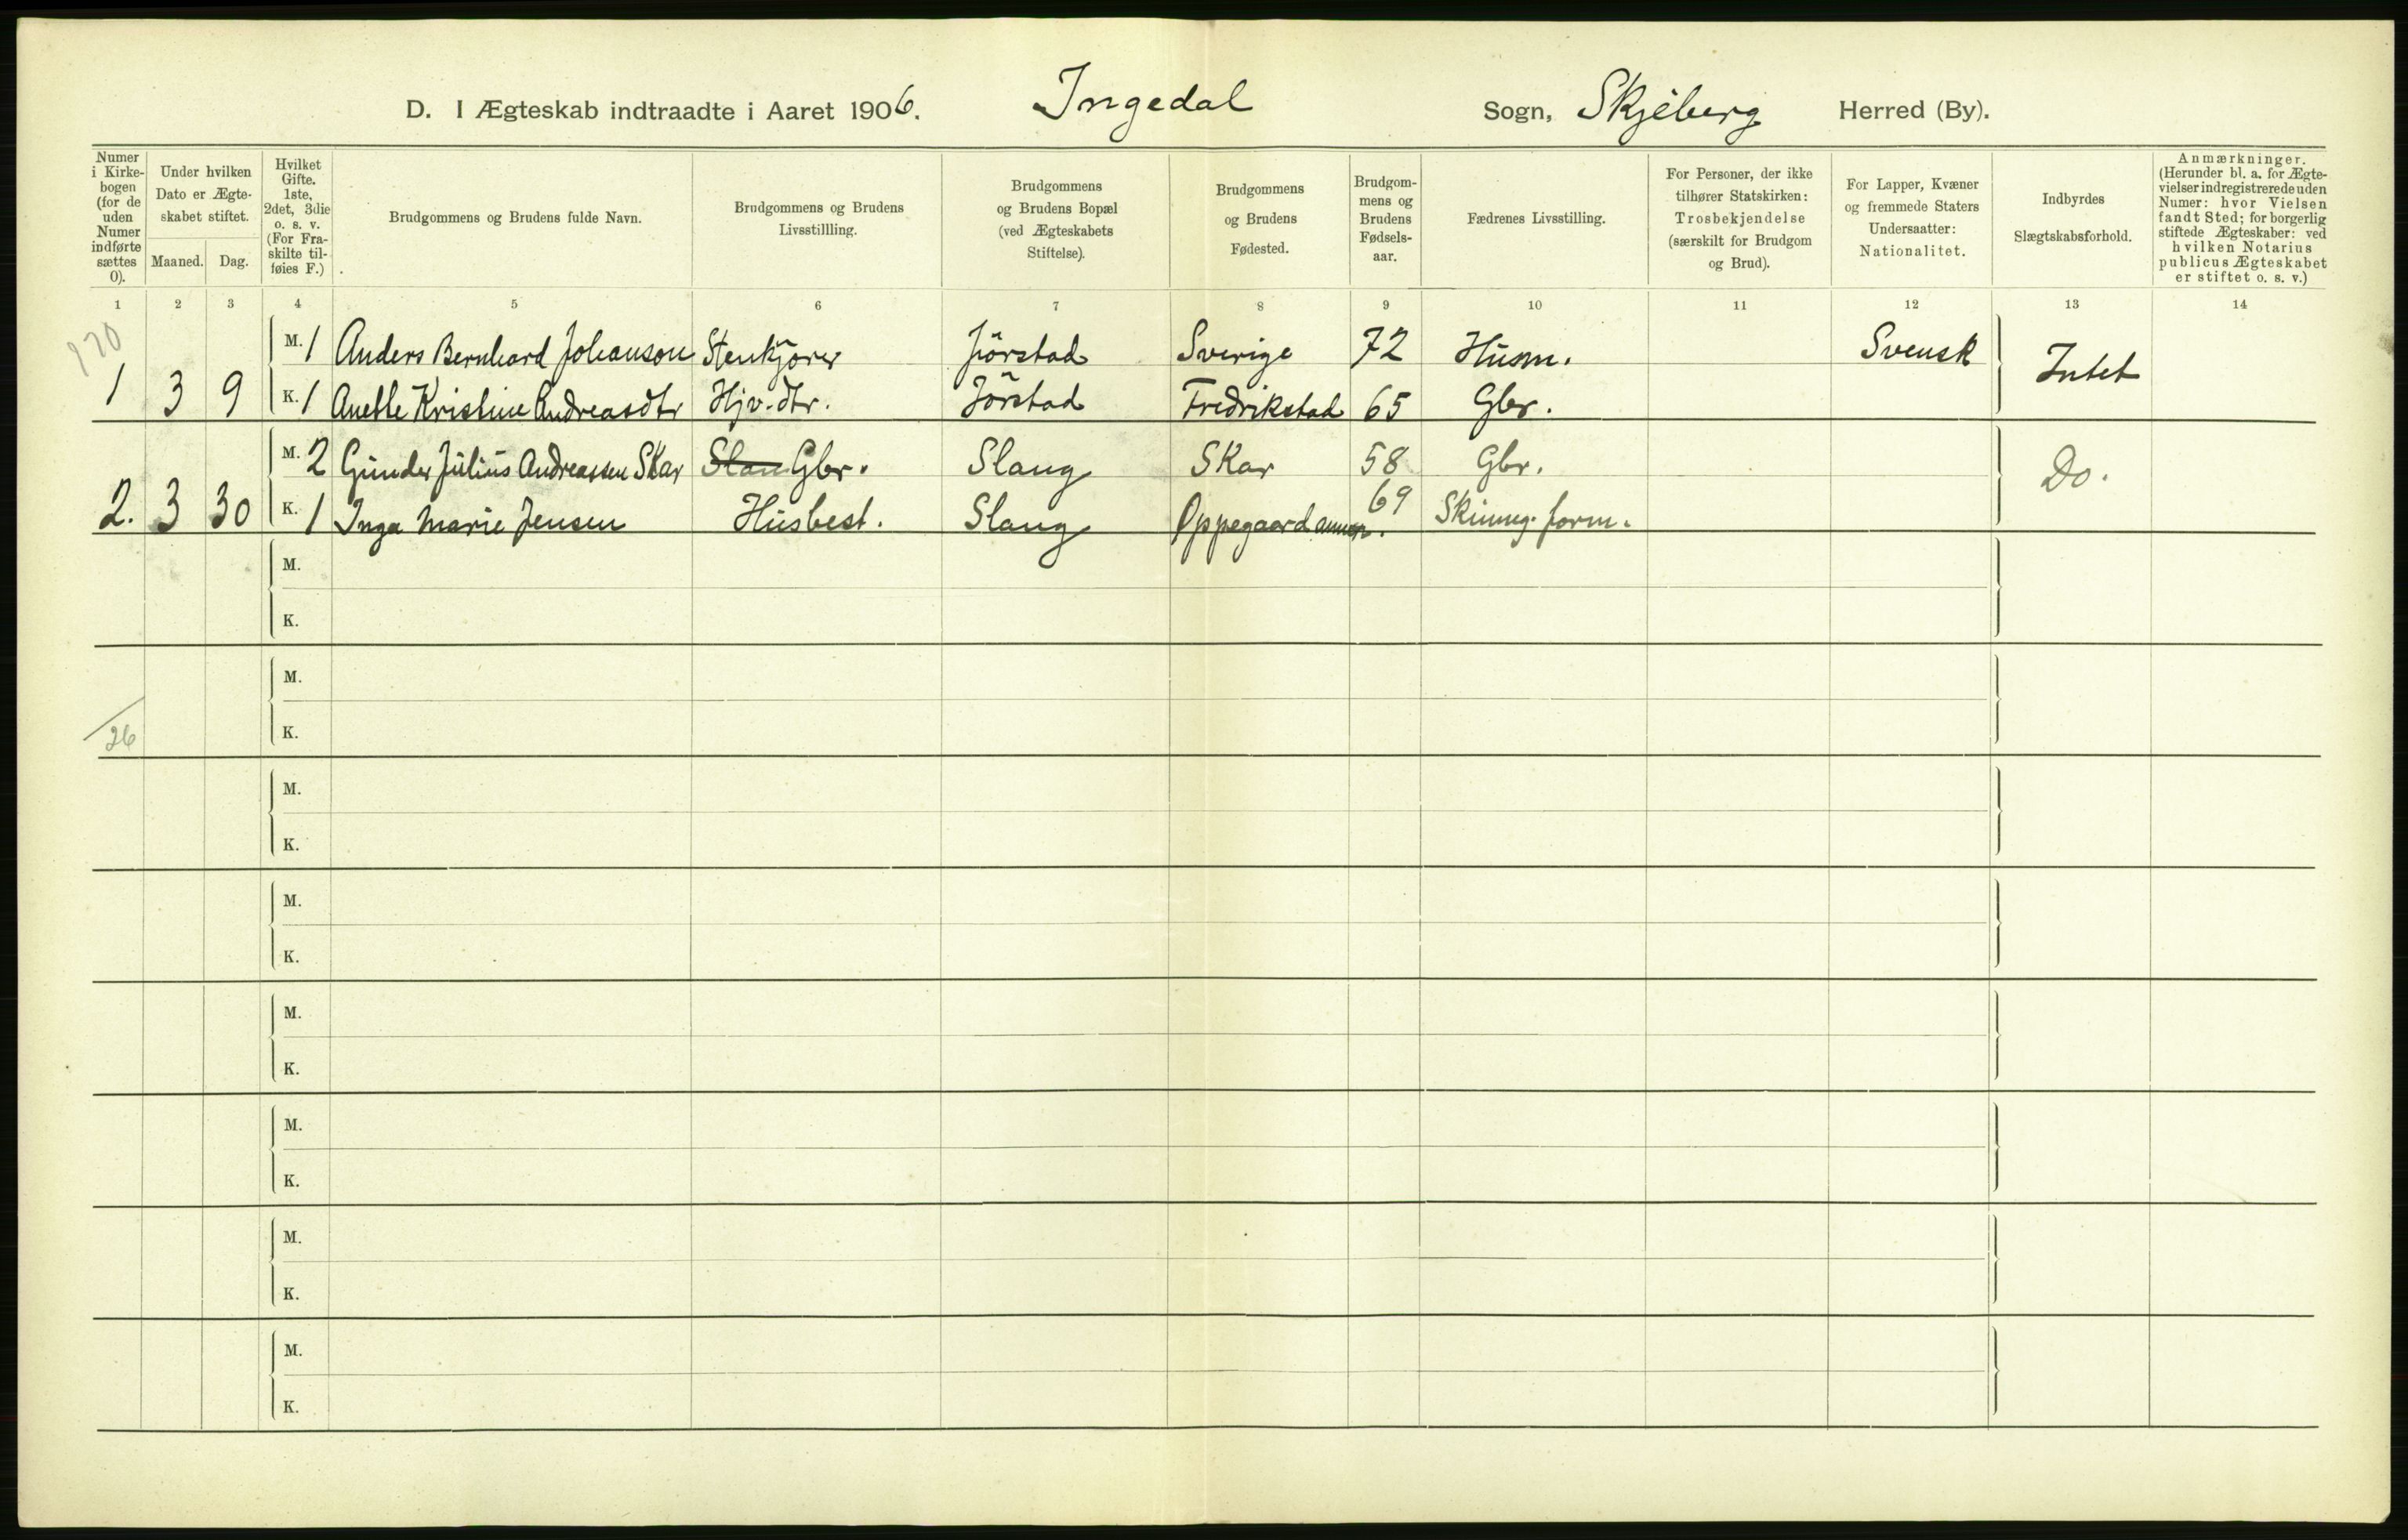 D. I Ægteskab indtraadte i Aaret 1906. Ingedal Sogn, Skjeberg Herred (By).
Numer i Kirkebogen (for de uden Numer indførte sættes 0).
Under hvilken Dato er Ægteskabet stiftet.
Maaned. Dag.
Hvilket Gifte. 1ste, 2det, 3die o. s. v. (For Fraskilte tilføies F.)
Brudgommens og Brudens fulde Navn.
Brudgommens og Brudens Livsstillling.
Brudgommens og Brudens Bopæl (ved Ægteskabets Stiftelse).
Brudgommens og Brudens Fødested.
Brudgommens og Brudens Fødselsaar.
Fædrenes Livsstilling.
For Personer, der ikke tilhører Statskirken: Trosbekjendelse (særskilt for Brudgom og Brud).
For Lapper, Kvæner og fremmede Staters Undersaatter: Nationalitet.
Indbyrdes Slægtskabsforhold.
Anmærkninger. (Herunder bl. a. for Ægtevielser indregistrerede uden Numer: hvor Vielsen fandt Sted; for borgerlig stiftede Ægteskaber: ved hvilken Notarius publicus Ægteskabet er stiftet o. s. v.)
1 2 3 4 5 6 7 8 9 10 11 12 13 14
170
M. 1 Anders Bernhard Johanson Stenkjører Jörstad Sverige 72 Husm. Svensk Intet
1 3 9 K. 1 Anette Kristine Andreasdtr Hjv. dtr. Jörstad Fredrikstad 65 Gbr.
M. 2 Gunder Julius Andreassen Skar Slan Gbr. Slang Skar 58 Gbr. Do.
2. 3 30 K. 1 Inga Marie Jensen Husbest. Slang Oppegaard 69 form.
M.
K.
M.
26 K.
M.
K.
M.
K.
M.
K.
M.
K.
M.
K.
M.
K.